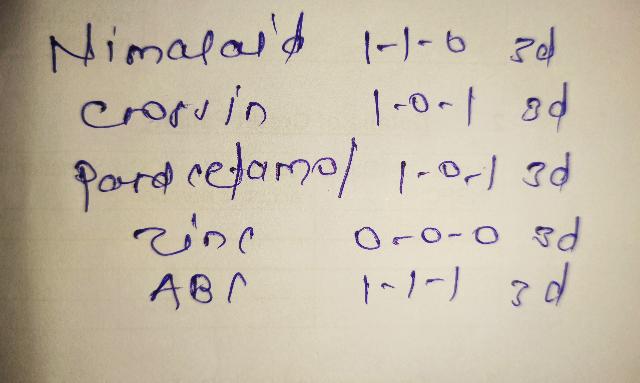 Nimalaid 1-1-0 3d
Crossin 1-0-1 3d
Paracetamol 1-0-1 3d
Zinc 0-0-0 3d
ABC 1-1-1 3d